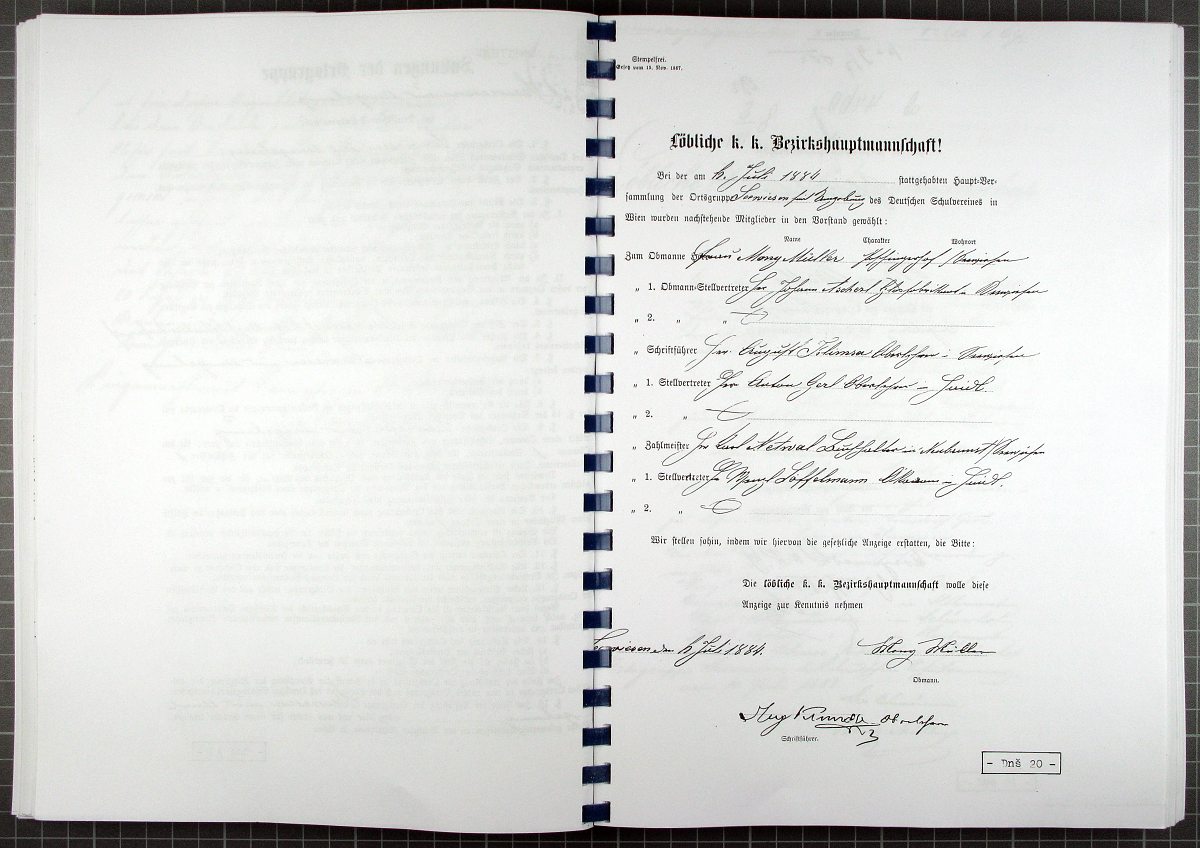 Stempelfrei.
Gesetz vom 15. Nov. 1867.
Löbliche k. k. Bezirkshauptmannschaft!
Bei der am Juli 1884 stattgehabten Haupt-Ver-
sammlung der Ortsgruppe Seewiesen und Umgebung des Deutschen Schulvereines in
Wien wurden nachstehende Mitglieder in den Vorstand gewählt:
Name Charakter Wohnort
Zum Obmanne Müller Seewiesen
„ 1. Obmann-Stellvertreter Hr. Johann Ascherl Seewiesen
„ 2. „ „
„ Schriftführer Hr. August Oberlehrer in Seewiesen
„ 1. Stellvertreter Hr. Anton Gerl Oberlehrer in Haidl.
„ 2. „
„ Zahlmeister Hr Karl Netwal Buchhalter in Seewiesen
„ 1. Stellvertreter Hr Wenzl Löffelmann in Haidl.
„ 2. „
Wir stellen sohin, indem wir hiervon die gesetzliche Anzeige erstatten, die Bitte:
Die löbliche k. k. Bezirkshauptmannschaft wolle diese
Anzeige zur Kenntnis nehmen
Seewiesen den Juli 1884.
Müller
Obmann.
Aug Oberlehrer
Schriftführer.
- Dnš 20 -